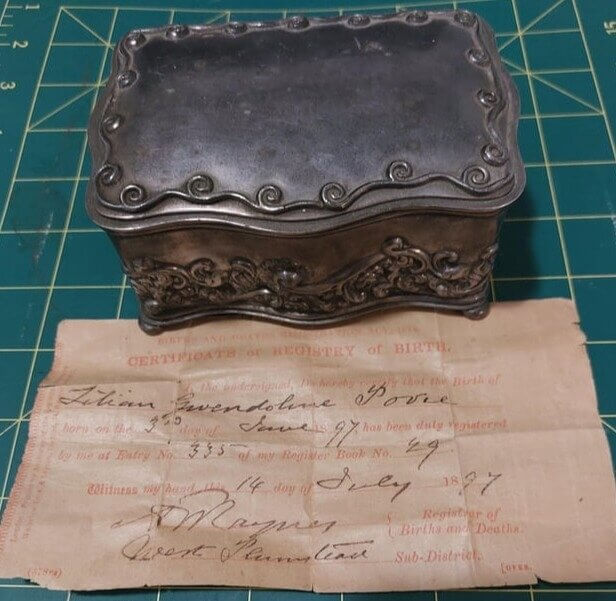 BIRTHS AND DEATHS REGISTRATION ACT, 1874
CERTIFICATE of REGISTRY of BIRTH.
the undersigned, Do hereby certify that the Birth of
Lilian Gwendoline Povie
born on the 3rd day of June 1897 has been duly registered
by me at Entry No. 335 of my Register Book No. 49
Witness my hand, this 14 day of July 1897
Registrar of
Births and Deaths.
West Plumstead Sub-District.
[OVER.
1
2
3